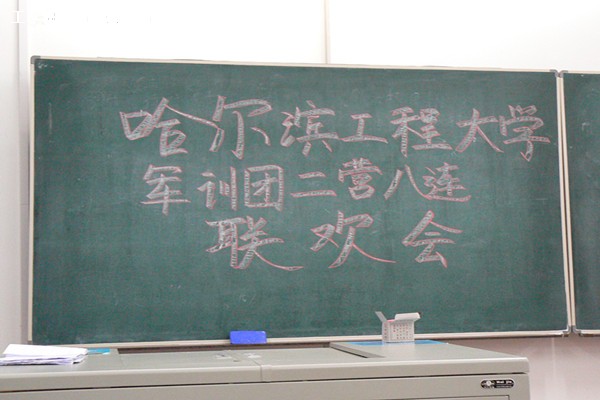 哈尔滨工程大学
军训团二营八连
联欢会